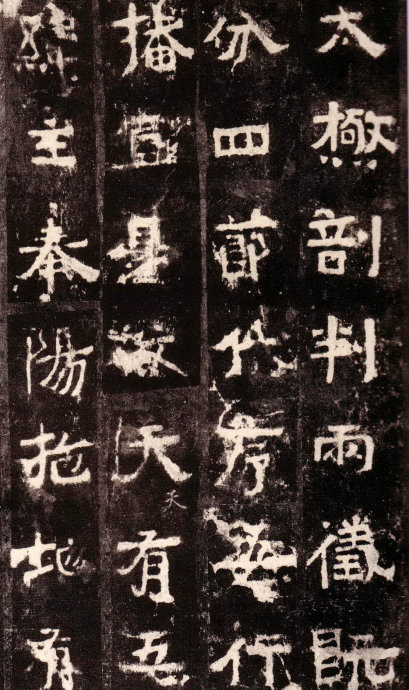 太極剖判兩儀既
分四節代序行
播宣是故天有五
緯主奉陽施地有